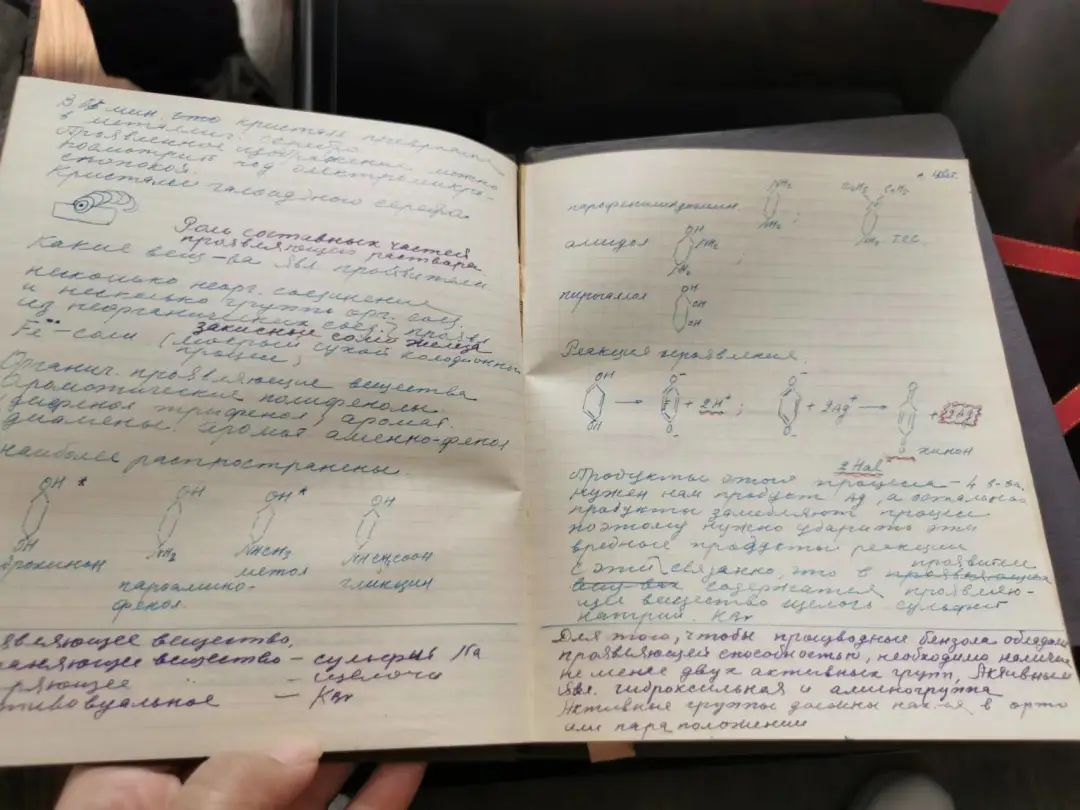 В 45 мин. что кристалл
в металлич. серебро
Проявленное изображение можно
посмотреть под электромикро-
скопом.
Кристалл галоидного серебра.
Роль составных частей
проявляющего раствора
Какие вещ-ва явл проявители
несколько неорг. соединений
и несколько групп орг. соед.
из неорганических соед.
закисные соли железа
Fe – соли (мокрый сухой колодионный
процесс)
Органич. проявляющие вещества
Ароматические полифенолы
(дифенол трифенол, аромат.
диамены, аромат аменно-фенол
наиболее распространены.
OH *
OH
OH
OH *
OH
NH2
NHCH3
NHCH2COOH
дрохинон
метол
глицин
параамино-
фенол
являющее вещество,
аняющее вещество – сульфит Na
ряющее – щелочи
тивовуальное – KBr
парафенилиндиамин.
NH2
NH2
;
C2H5
C2H5
NH2
TCC.
амидол
OH
NH2
NH2
пирогалол
OH
OH
OH
Реакция проявления.
OH
OH
→
O⁻
O⁻
+ 2H⁺ ;
O⁻
O⁻
+ 2Ag⁺ →
O
O
+ 2Ag
хинон
2 Hal
Продукты этого процесса – 4 в-ва.
нужен нам продукт Ag, а остальные
продукты замедляют процесс
поэтому нужно убирать эти
вредные продукты реакции
С этим связанно, что в проявляющем
проявителе
содержатся проявляю-
щее вещество щелочь сульфит
натрия. KBr
Для того, чтобы производные бензола обладали
проявляющей способностью, необходимо наличие
не менее двух активных групп, Активным
явл. гидроксильная и аминогруппа
Активные группы должны нах-ся в орто
или пара положении